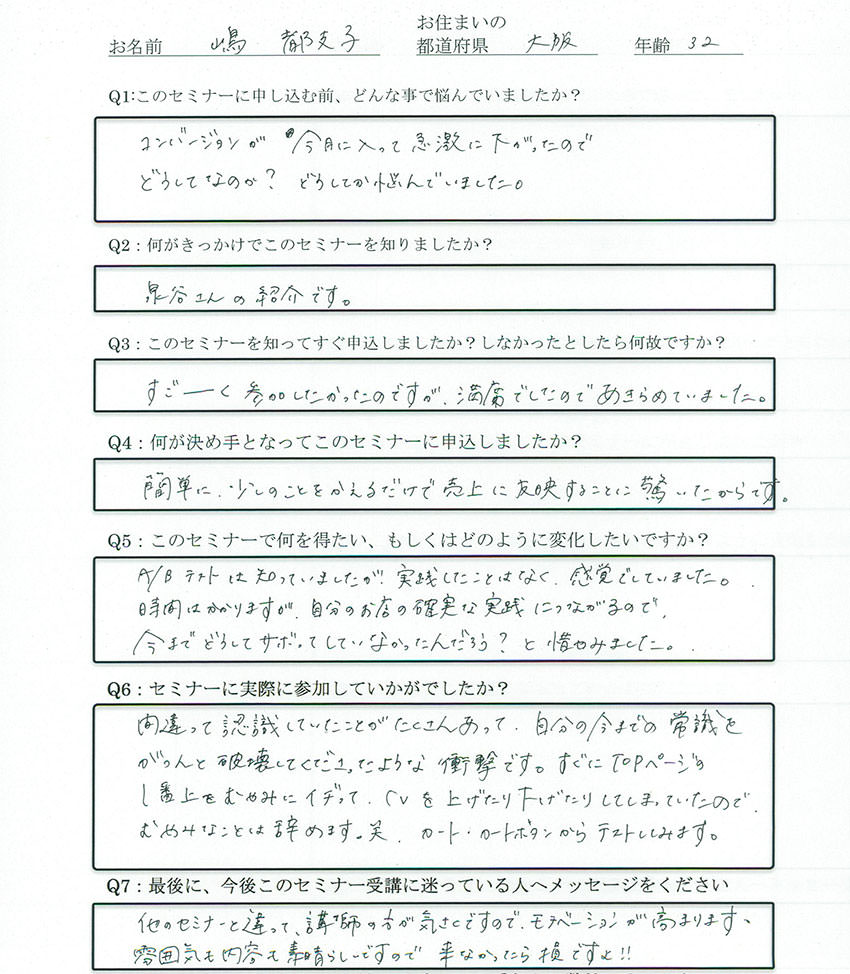 お名前 嶋 都支子 お住まいの都道府県 大阪 年齢 32
Q1:このセミナーに申し込む前、どんな事で悩んでいましたか？
コンバージョンが 今月に入って急激に下がったので
どうしてなのか？ どうしてか悩んでいました。
Q2：何がきっかけでこのセミナーを知りましたか？
泉谷さんの紹介です。
Q3：このセミナーを知ってすぐ申込しましたか？しなかったとしたら何故ですか？
すごーく参加したかったのですが、満席でしたのであきらめていました。
Q4：何が決め手となってこのセミナーに申込しましたか？
簡単に、少しのことをかえるだけで売上に反映することに驚いたからです。
Q5：このセミナーで何を得たい、もしくはどのように変化したいですか？
A/Bテストは知っていましたが、実践したことはなく、感覚でしていました。
時間はかかりますが、自分のお店の確実な実践につながるので、
今までどうしてサボってしていなかったんだろう？と悔やみました。
Q6：セミナーに実際に参加していかがでしたか？
間違って認識していたことがたくさんあって、自分の今までの常識を
がつんと破壊してくださったような衝撃です。すぐにTOPページの
1番上をむやみにイヂって、CVを上げたり下げたりしてしまっていたので、
むやみなことは辞めます。笑、カート・カートボタンからテストしてみます。
Q7：最後に、今後このセミナー受講に迷っている人へメッセージをください
他のセミナーと違って、講師の方が気さくですので、モチベーションが高まります、
雰囲気も内容も素晴らしいですので来なかったら損ですよ!!